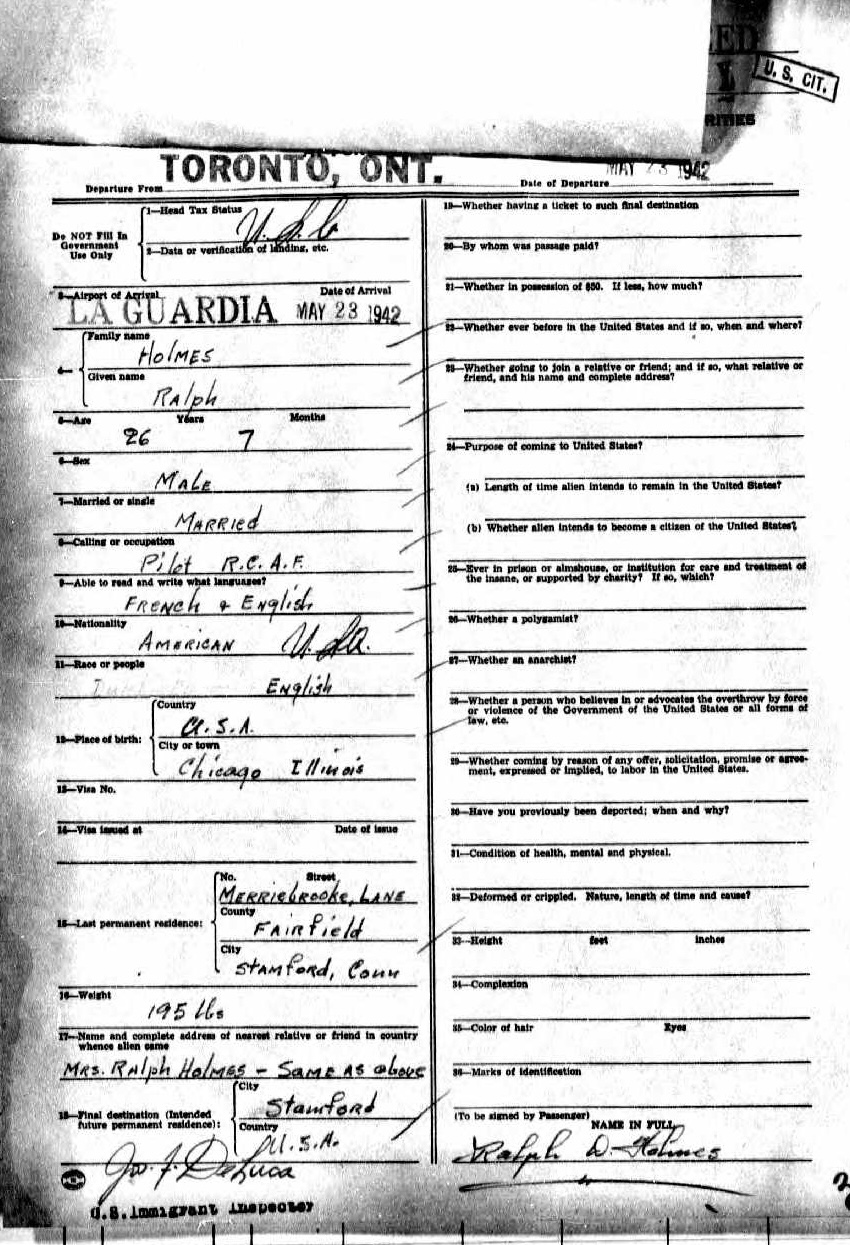 U. S. CIT.
RITIES
TORONTO, ONT.
MAY 23 1942
Departure From
Date of Departure
Do NOT Fill In
Government
Use Only
1—Head Tax Status
2—Data or verification of landing, etc.
3—Airport of Arrival
Date of Arrival
LA GUARDIA MAY 23 1942
4—
Family name
HOLMES
Given name
RAlph
5—Age Years Months
26 7
6—Sex
MALE
7—Married or single
MARRIEd
8—Calling or occupation
Pilot R.C.A.F.
9—Able to read and write what languages?
FRENCH & ENglish
10—Nationality
AMERICAN U.S.A.
11—Race or people
ENglish
12—Place of birth:
Country
U.S.A.
City or town
Chicago Illinois
13—Visa No.
14—Visa issued at Date of issue
15—Last permanent residence:
No. Street
MERRIEbROOKE, LANE
County
FAIRfiEld
City
STAMFORD, CONN
16—Weight
195 lbs
17—Name and complete address of nearest relative or friend in country
whence alien came
MRS. RAlph HOLMES - SAME AS above
18—Final destination (Intended
future permanent residence):
City
Stamford
Country
U.S.A.
Jos. J. DeLuca
U.S. Immigrant Inspector
19—Whether having a ticket to such final destination
20—By whom was passage paid?
21—Whether in possession of $50. If less, how much?
22—Whether ever before in the United States and if so, when and where?
23—Whether going to join a relative or friend; and if so, what relative or
friend, and his name and complete address?
24—Purpose of coming to United States?
(a) Length of time alien intends to remain in the United States?
(b) Whether alien intends to become a citizen of the United States?
25—Ever in prison or almshouse, or institution for care and treatment of
the insane, or supported by charity? If so, which?
26—Whether a polygamist?
27—Whether an anarchist?
28—Whether a person who believes in or advocates the overthrow by force
or violence of the Government of the United States or all forms of
law, etc.
29—Whether coming by reason of any offer, solicitation, promise or agree-
ment, expressed or implied, to labor in the United States.
30—Have you previously been deported; when and why?
31—Condition of health, mental and physical.
32—Deformed or crippled. Nature, length of time and cause?
33—Height feet inches
34—Complexion
35—Color of hair Eyes
36—Marks of identification
(To be signed by Passenger)
NAME IN FULL
Ralph W. Holmes